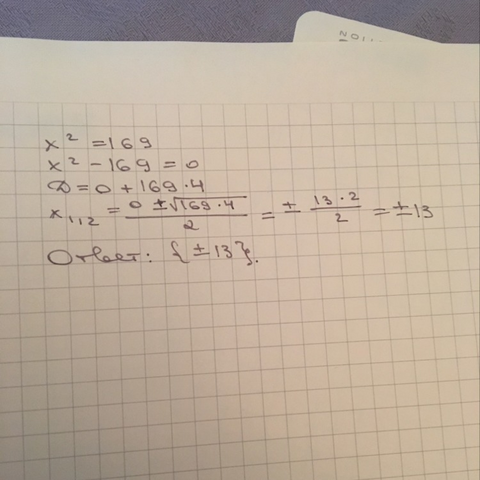 x² = 169
x² - 169 = 0
D = 0 + 169 · 4
x₁,₂ = (0 ± √169 · 4) / 2 = ± (13 · 2) / 2 = ± 13
Ответ: {± 13}.